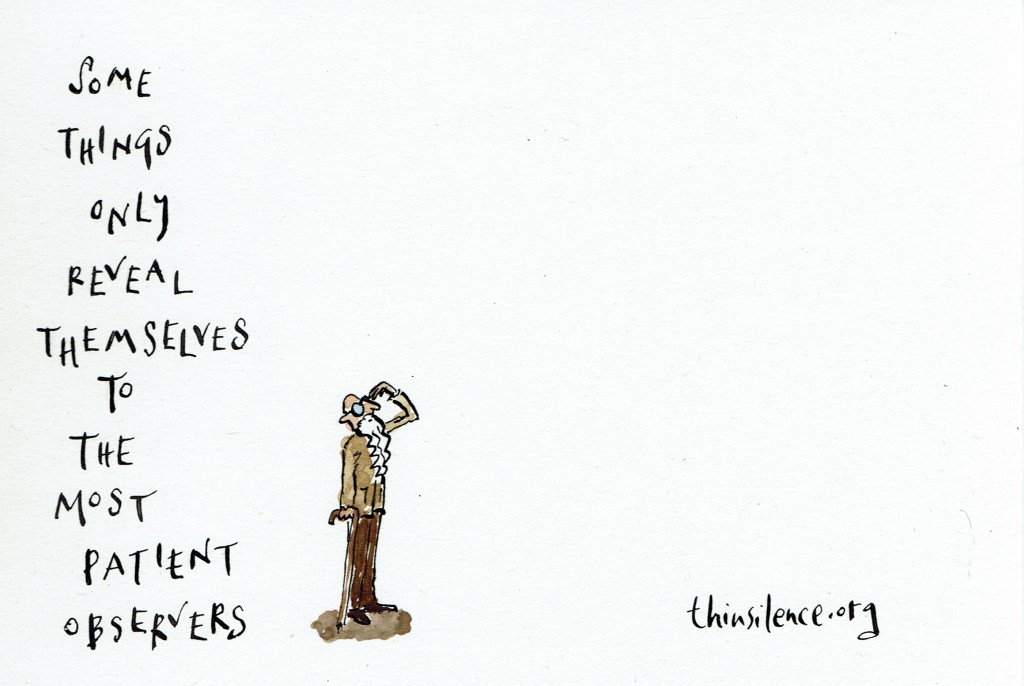 SOME
THINGS
ONLY
REVEAL
THEMSELVES
TO
THE
MOST
PATIENT
OBSERVERS
thinsilence.org